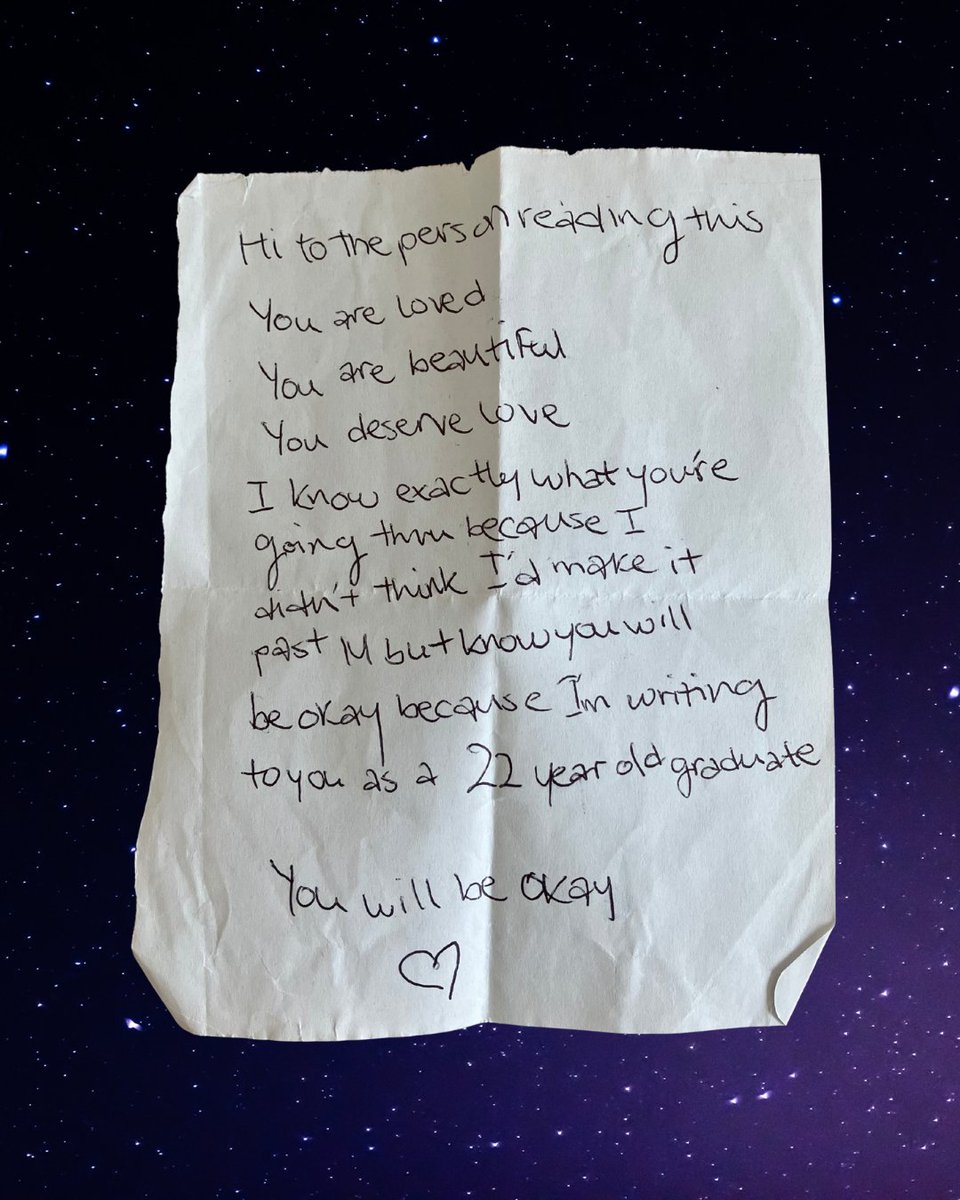 Hi to the person reading this
You are loved
You are beautiful
You deserve love
I know exactly what you're
going thru because I
didn't think I'd make it
past 14 but know you will
be okay because I'm writing
to you as a 22 year old graduate
You will be okay